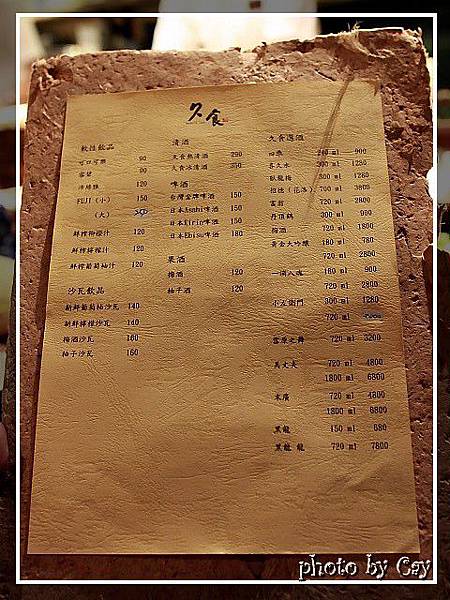 久食
軟性飲品
可口可樂 90
雪碧 90
沛綠雅 120
FUJI (小) 150
(大)
鮮榨柳橙汁 120
鮮榨檸檬汁 120
鮮榨葡萄柚汁 120
沙瓦飲品
新鮮葡萄柚沙瓦 140
新鮮檸檬沙瓦 140
梅酒沙瓦 160
柚子沙瓦 160
清酒
久食熱清酒 290
久食冰清酒 350
啤酒
台灣金牌啤酒 150
日本Asahi啤酒 150
日本Kirin啤酒 150
日本Ebisu啤酒 180
果酒
梅酒 120
柚子酒 120
久食選酒
900
喜久水 300 ml 1280
臥龍梅 360 ml 1280
700 ml 3805
富翁 720 ml 2800
丹頂鶴 300 ml 990
梅酒 720 ml 1800
黃金大吟釀 180 ml 780
720 ml 2800
一滴入魂 180 ml 900
720 ml 2800
小左衛門 300 ml 1280
720 ml
富翁之舞 720 ml 3200
萬丈夫 720 ml 4800
1800 ml 6800
末廣 720 ml 4800
1800 ml 8800
黑龍 150 ml 680
黑龍 龍 720 ml 7800
photo by Cay